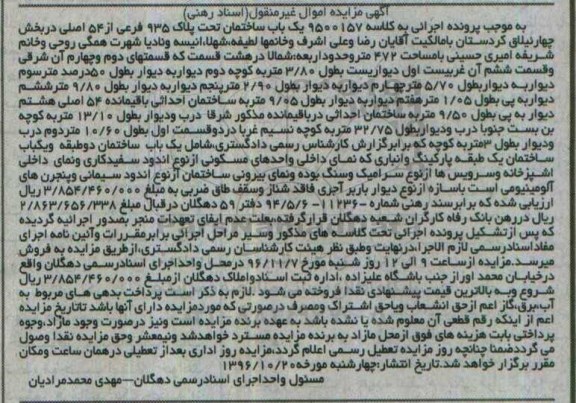 آگهی مزایده اموال غیرمنقول(اسناد رهنی)
به موجب پرونده اجرائی به کلاسه ۹۵۰۰۱۵۷ یک باب ساختمان تحت پلاک ۹۳۵ فرعی از۵۴ اصلی دربخش
چهارنیلاق کردستان بامالکیت آقایان رضا وعلی اشرف وخانمها لطیفه،شهلا،انیسه ونادیا شهرت همگی روحی وخانم
شریفه امیری حسینی بامساحت ۴۷۲ مترو حدوداربعه:شمالا درهشت قسمت که قسمتهای دوم وچهارم آن شرقی
وقسمت ششم آن غربیست اول دیواریست بطول ۳/۸۰ متربه کوچه دوم دیواربه دیوار بطول ۵۰درصد مترسوم
دیواربه دیواربطول ۵/۷۰ مترچهارم دیواربه دیوار بطول ۲/۹۰ مترپنجم دیواربه دیوار بطول ۹/۸۰ مترششم
دیواربه پی بطول ۱/۰۵ مترهفتم دیواربه دیوار بطول ۹/۰۵ متربه ساختمان احداثی باقیمانده ۵۴ اصلی هشتم
دیوار به پی بطول ۹/۵۰ متربه ساختمان احداثی درباقیمانده مذکور شرقا درب ودیوار بطول ۱۳/۱۰ متربه کوچه
بن بست جنوبا درب ودیواربطول ۳۲/۷۵ متربه کوچه نسیم غربا دردوقسمت اول بطول ۱۰/۶۰ متردوم درب
ودیوار بطول ۳متربه کوچه که برابرگزارش کارشناس رسمی دادگستری،شامل یک باب ساختمان دوطبقه ویکباب
ساختمان یک طبقه پارکینگ وانباری که نمای داخلی واحدهای مسکونی ازنوع اندود سفیدکاری ونمای داخلی
اشپزخانه وسرویس ها ازنوع سرامیک وسنگ بوده ونمای بیرونی ساختمان ازنوع اندود سیمانی وپنجرن های
آلومینیومی است باسازه ازنوع دیوار باربر آجری فاقد شناژ وسقف طاق ضربی به مبلغ ۳/۸۵۴/۴۶۰/۰۰۰ ریال
ارزیابی شده که برابرسند رهنی شماره ۱۱۲۳۶- ۹۴/۵/۶ دفتر ۵۹ دهگلان درقبال مبلغ ۲/۸۶۳/۶۵۶/۳۳۸
ریال دررهن بانک رفاه کارگران شعبه دهگلان قرارگرفته،بعلت عدم ایفای تعهدات منجر بصدور اجرائیه گردیده
که پس ازتشکیل پرونده اجرائی تحت کلاسه های مذکور وسیر مراحل اجرائی برابرمقررات وآئین نامه اجرای
مفاداسنادرسمی لازم الاجرا،درنهایت وطبق نظر هیئت کارشناسان رسمی دادگستری،ازطریق مزایده به فروش
میرسد.مزایده ازساعت ۹ الی ۱۲ روز شنبه مورخ ۹۶/۱۱/۷ درمحل واحداجرای اسنادرسمی دهگلان واقع
درخیابان محمد اوراز جنب باشگاه علیزاده ،اداره ثبت اسنادواملاک دهگلان ازمبلغ ۳/۸۵۴/۴۶۰/۰۰۰ ریال
شروع وبه بالاترین قیمت پیشنهادی نقدا فروخته می شود .لازم به ذکر است پرداخت بدهی های مربوط به
آب،برق،گاز اعم ازحق انشعاب ویاحق اشتراک ومصرف درصورتی که موردمزایده دارای آنها باشد تاتاریخ مزایده
اعم از اینکه رقم قطعی آن معلوم شده یا نشده باشد به عهده برنده مزایده است ونیز درصورت وجود مازاد،وجوه
پرداختی بابت هزینه های فوق ازمحل مازاد به برنده مزایده مسترد خواهدشد ونیمعشر وحق مزایده نقدا وصول
می گرددضمنا چنانچه روز مزایده تعطیل رسمی اعلام گردد،مزایده روز اداری بعداز تعطیلی درهمان ساعت ومکان
مقرر برگزار خواهد شد.تاریخ انتشار:چهارشنبه مورخه۱۳۹۶/۱۰/۲۰
مسئول واحداجرای اسنادرسمی دهگلان—مهدی محمدمرادیان